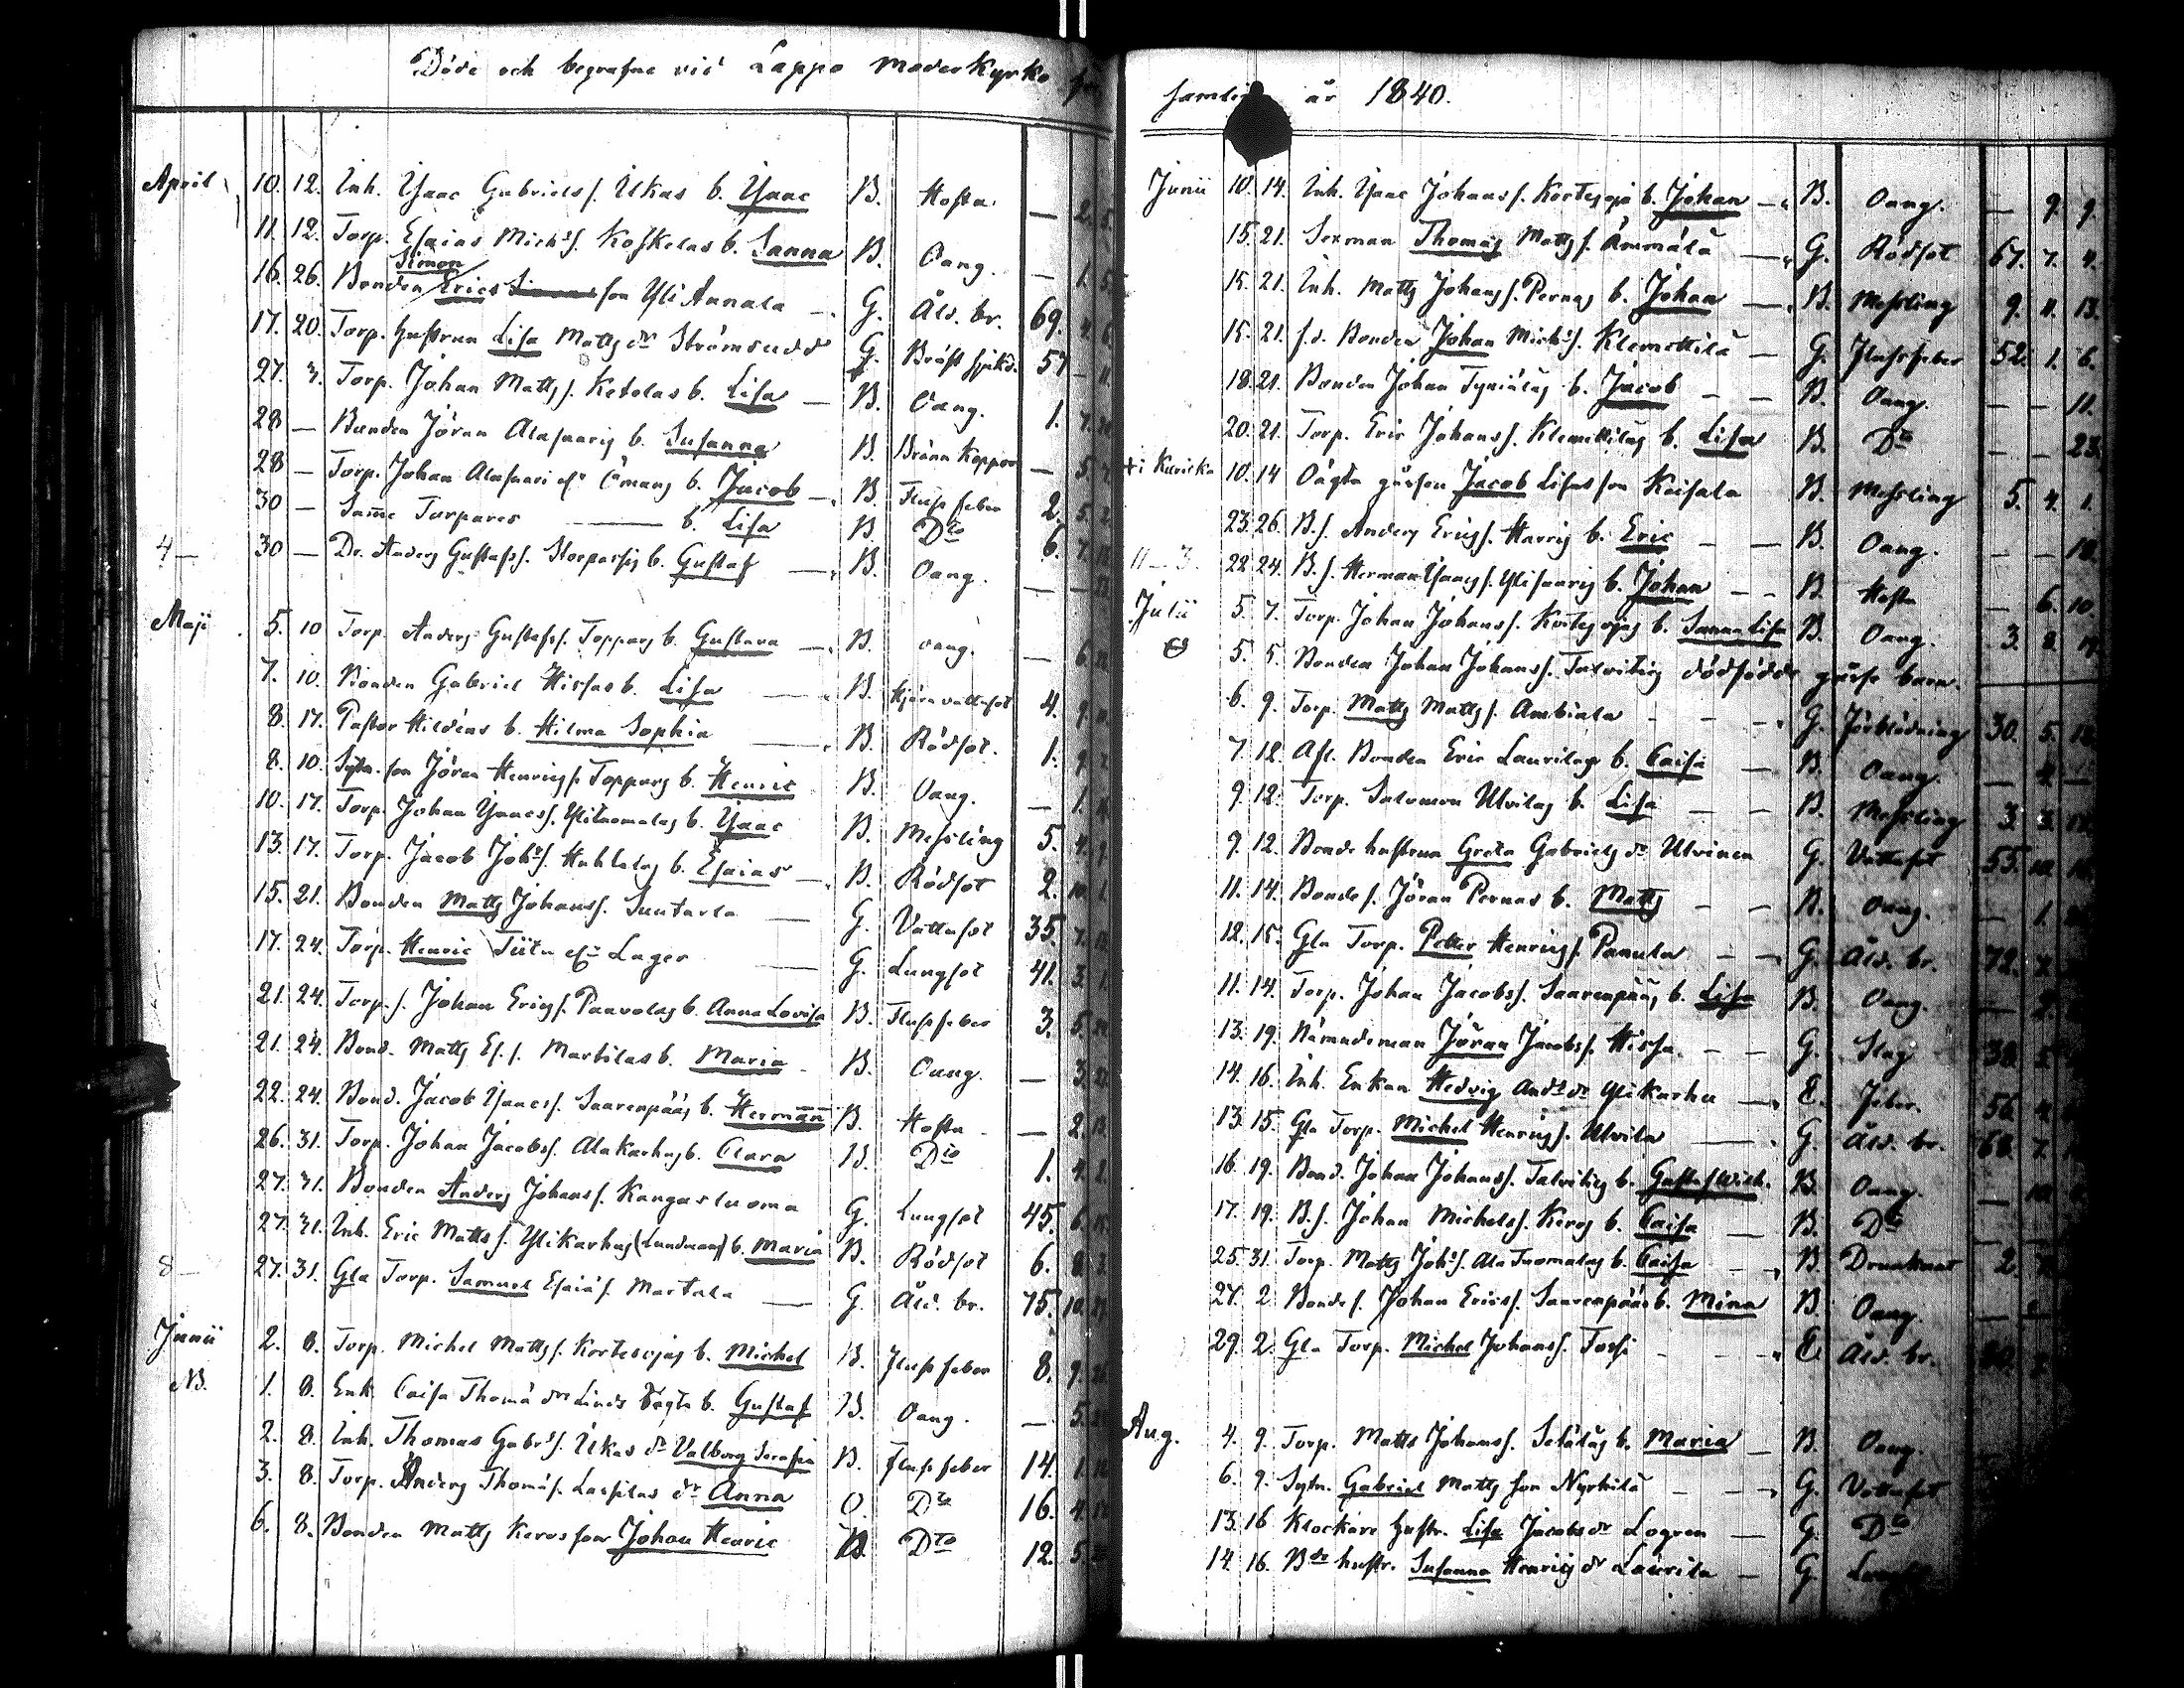 Döde och begrafne vid Lappo Moderkyrko för
April 10. 12. Inh. Isaac Gabrielss. Ukas b. Isaac B. Hosta. — 2. 5.
11. 12. Torp. Esaias Mich:s. Koskelas b. Sanna B. Oang. — 1. 5
Simon
16. 26. Bonden Erics son Yli Annala G. Åld. br. 69. 4. 6.
17. 20. Torp. hustrun Lisa Matts dr Strömsudd G. Bröst sjukd. 57 — 11.
27. 3. Torp. Johan Matts s. Ketolas b. Lisa — B. Oang. 1. 7.
28 — Bonden Jöran Alasaaris b. Susanna B. Bränn Koppor — 5.
28 — Torp. Johan Alasaari el. Östmans b. Jacob B. Fluss feber 2. 5.
30 — Samme Torpares — b. Lisa B. Dto 6. 7.
4 — 30 — Dr. Anders Gustafss. Storpassis b. Gustaf — B. Oang. — —
Maji 5. 10 Torp. Anders Gustafss. Toppars b. Gustava — B. oang. — 6.
7. 10. Bonden Gabriel Hissas b. Lisa — B. Hjernvattusot 4. 9.
8. 17. Pastor Hildéns b. Hilma Sophia — B. Rödsot. 1. 9.
8. 10. Sytn. son Jöran Henrics s. Toppars b. Henric B. Oang. — 1.
10. 17. Torp. Johan Isaacss. Ylituomalas b. Isaac B. Messling 5. 4. 9.
13. 17. Torp. Jacob Joh:s. Huhtalas b. Esaias — B. Rödsot 2. 10. 1.
15. 21. Bonden Matts Johanss. Luutarla — G. Vattusot 35. 7.
17. 24. Torp. Henric Tiita el. Lager — G. Lungsot 41. 3. 1.
21. 24. Torp. s. Johan Erics s. Paavolas b. Anna Lovisa B. Fluss feber 3. 5.
21. 24. Bond. Matts Es. s. Marttilas b. Maria B. Oang. — 3.
22. 24. Bond. Jacob Isaacss. Saarenpääs b. Hermann B. Hosta — 2.
26. 31. Torp. Johan Jacobss. Alakarhus b. Clara B. Dto 1. 4. 2.
27. 31. Bonden Anders Johans s. Kangasluoma G. Lungsot 45. 6. 15.
27. 31. Inh. Eric Matts s. Ylikarhus (Lundman) b. Maria B. Rödsot 6. 8.
8 — 27. 31. Gla Torp. Samuel Esaiæ s. Martala — G. Åld. br. 75. 10.
Junii 2. 8. Torp. Michel Matts s. Kortesojas b. Michel B. Fluss feber 8. 9.
N. 1. 8. Enk. Caisa Thomæ drs Linds oägta b. Gustaf B. Oang. — 5.
2. 8. Inh. Thomas Gabr:s. Ukas dr Valborg Serafia B. Fluss feber 14. 1.
3. 8. Torp. Anders Thomæ s. Lassilas dr Anna O. Dto 16. 4.
6. 8. Bonden Matts Keros son Johan Henric B. Dto 12. 5.
samling år 1840.
Junii 10. 14. Inh. Isaac Johans s. Kortesojas b. Johan — B. Oang. — 9. 9.
15. 21. Sexman Thomas Matts s. Ämmälä — G. Rödsot 67. 7. 4.
15. 21. Inh. Matts Johans s. Pernas b. Johan — B. Messling 9. 11. 13.
15. 21. f.d. Bonden Johan Mich:s. Klemettilä — G. Flussfeber 52. 1. 6.
18. 21. Bonden Johan Tyniäläs b. Jacob — — B. Oang. — — 11.
20. 21. Torp. Eric Johans s. Klemettiläs b. Lisa B. Dto — — 23.
+ i Kuricka 10. 14 Oägta gossen Jacob Lisas son Kaisala B. Messling 5. 4. 1.
23. 26. B.s. Anders Erics s. Harris b. Eric — — B. Oang. — — 10.
11 — 3. 22. 24. B.s. Herman Isaacs s. Ylisaaris b. Johan — — B. Hosta — 6. 10.
Julii 5. 7. Torp. Johan Johans s. Kortesojas b. Sanna Lisa B. Oang. 3. 8.
5. 5. Bonden Johan Johans s. Talvities dödfödde gosse barn.
6. 9. Torp. Matts Matts s. Anttila — — G. Förblödning 30. 5.
7. 12. Afl. Bonden Eric Laurilas b. Caisa — B. Oang. — 4. —
9. 12. Torp. Salomon Ulvilas b. Lisa — — B. Messling 3. 3.
9. 12. Bonde hustrun Greta Gabriels dr Ulvinen G. Vattusot 55. 10.
11. 14. Bonde s. Jöran Pernas b. Matts — — B. Oang. — 1.
12. 15. Gla Torp. Petter Henrics s. Panula — — G. Åld. br. 72.
11. 14. Torp. Johan Jacobss. Saarenpääs b. Lisa B. Oang. —
13. 19. Nämndeman Jöran Jacobss. Hissa — — G. Slag 38. 5
14. 16. Inh. Enkan Hedvig And:s dr Ylikarhu — E. Feber. 56. 4.
13. 15. Gla Torp. Michel Henrics s. Ulvila — G. Åld. br. 68. 7.
16. 19. Bond. Johan Johanss. Talvities b. Gustaf Wilh. B. Oang. — 10.
17. 19. B.s. Johan Michelss. Keros b. Caisa — B. Dto
25. 31. Torp. Matts Joh:s. Ala Tuomalas b. Caisa — B. Drunknat 2.
27. 2. Bonde s. Johan Ericss. Saarenpääs b. Mina B. Oang. —
29. 2. Gla Torp. Michel Johanss. Tassi — — E. Åld. br. 80.
Aug. 4. 9. Torp. Matts Johans s. Seläläs b. Maria — B. Oang.
6. 9. Sytn. Gabriel Matts son Nyrhilä — — G. Vattusot
13. 16 Klockare hustr. Lisa Jacobs dr Logren — G. Dto
14. 16. Bde hustr. Susanna Henrics dr Laurila — G.